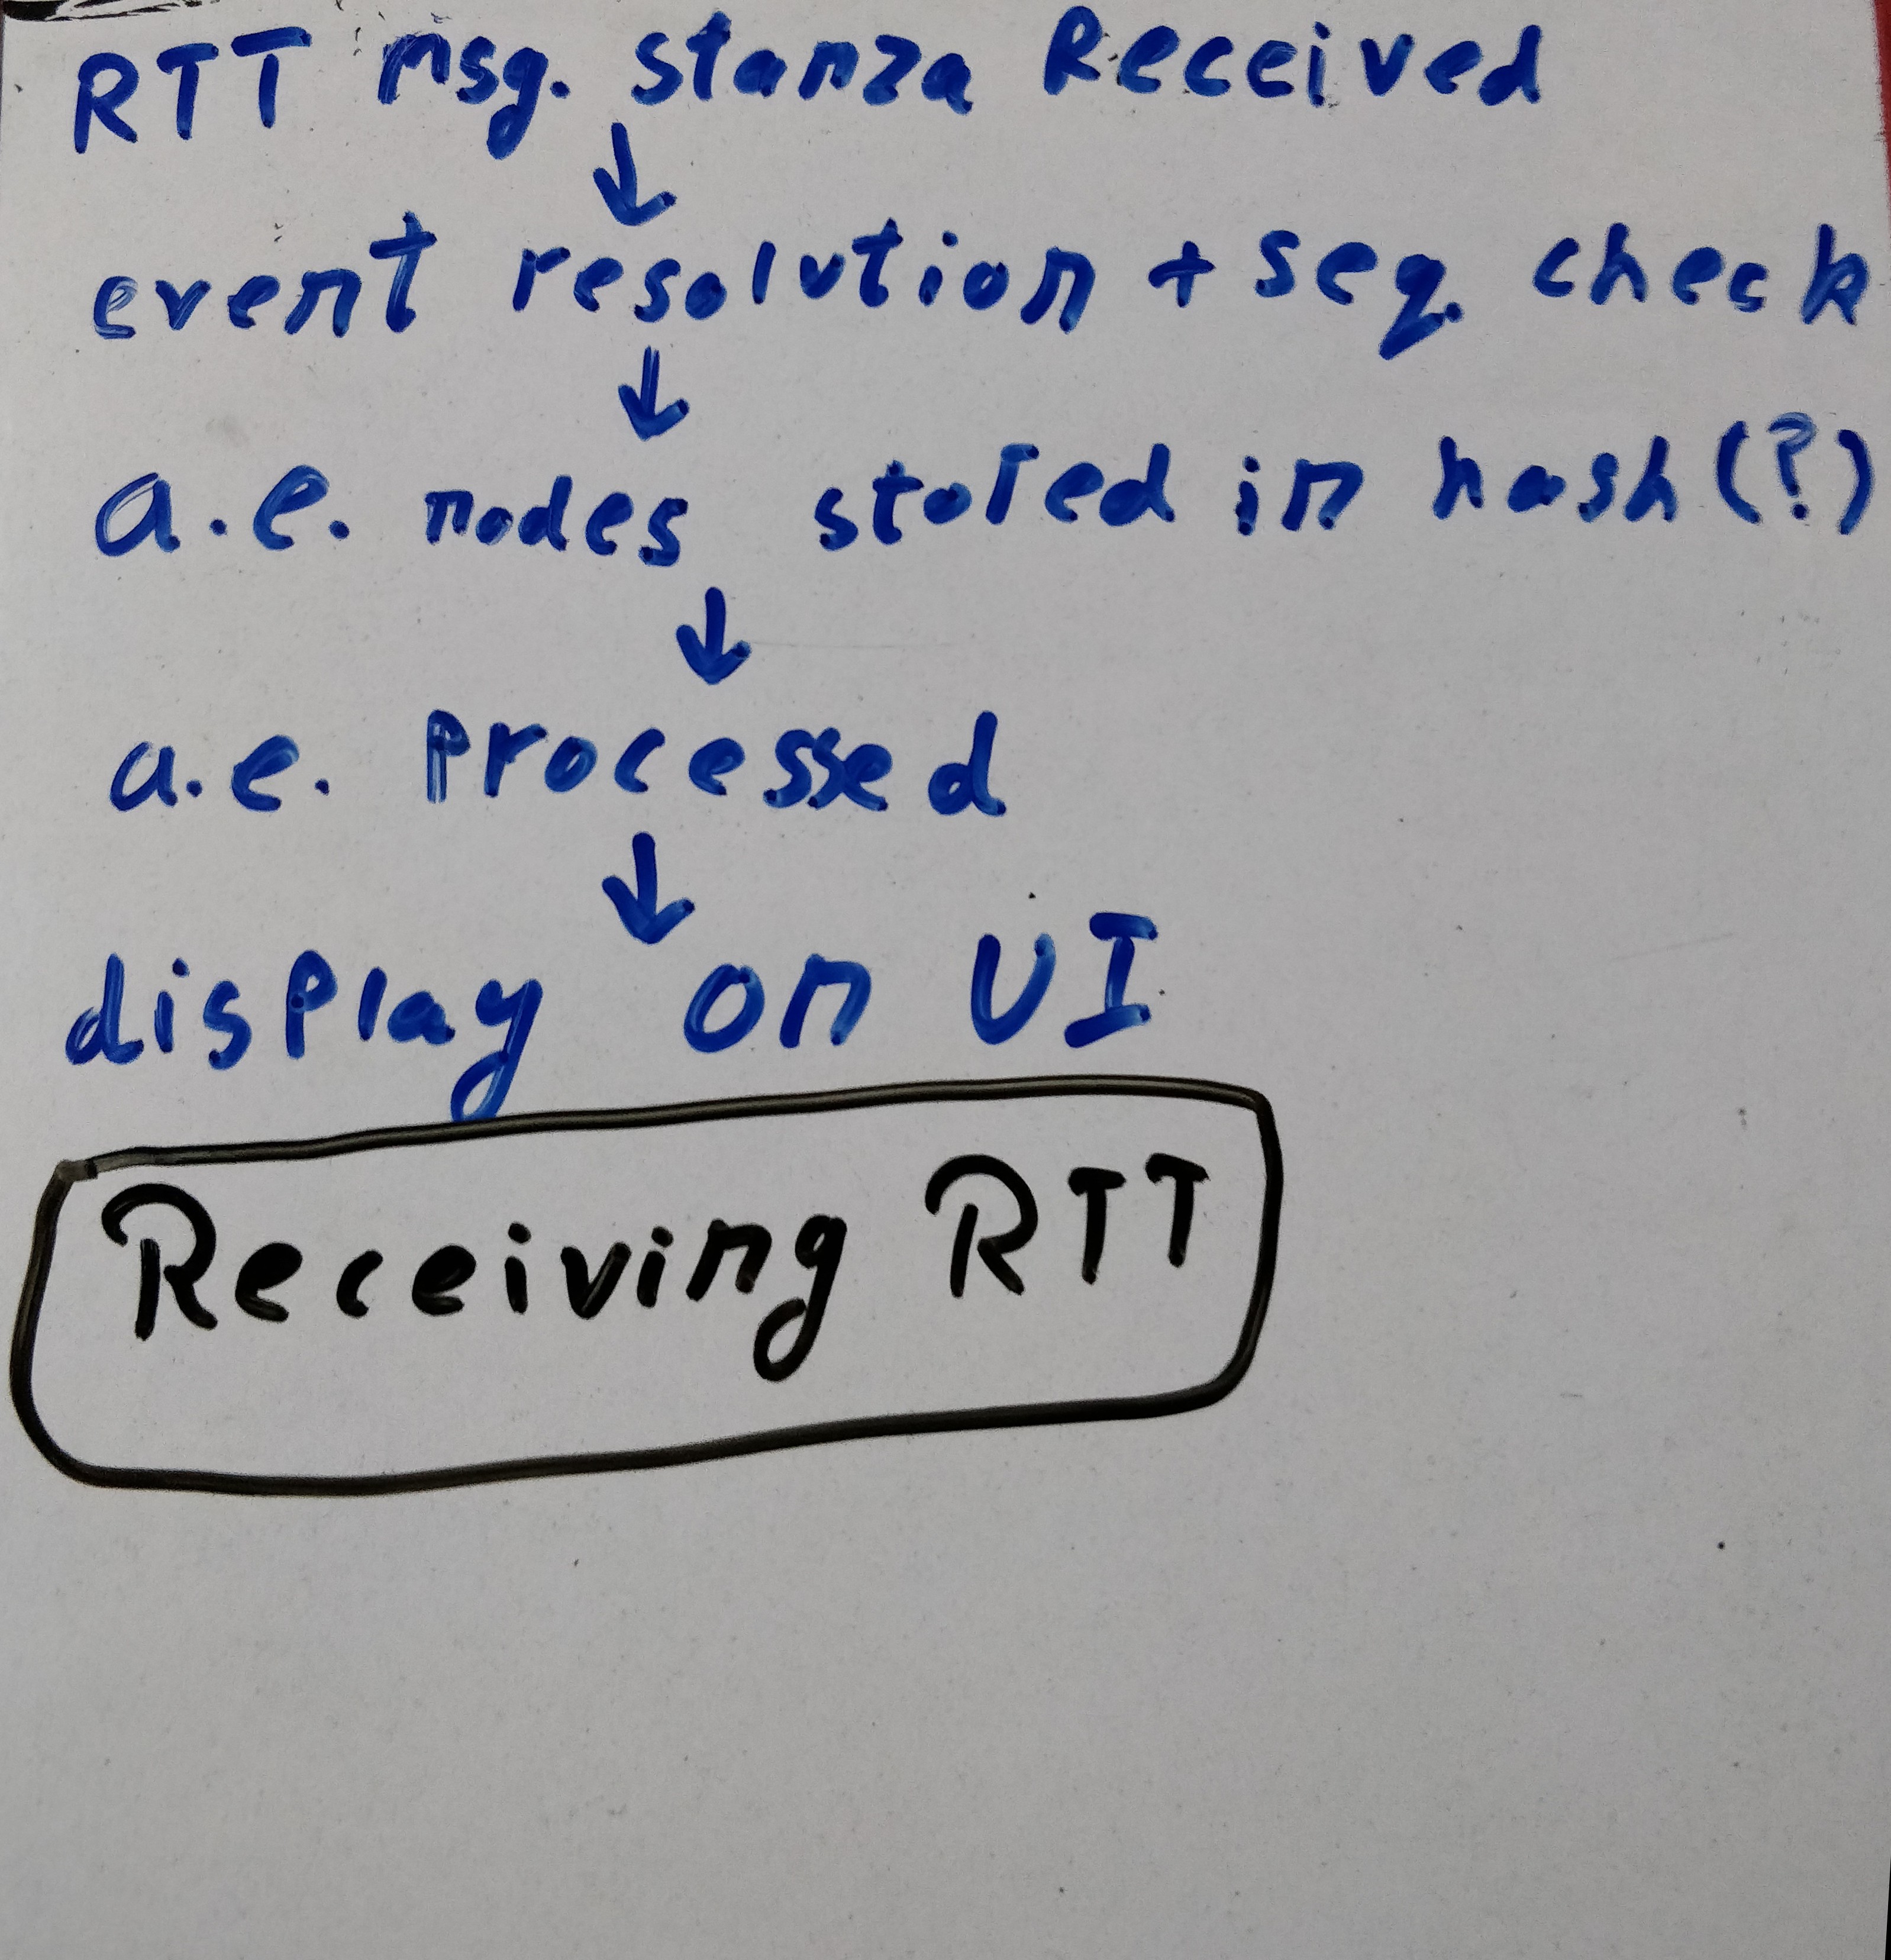 RTT msg. stanza Received
↓
event resolution + seq. check
↓
a.e. nodes stored in hash(?)
↓
a.e. processed
↓
display on UI
Receiving RTT